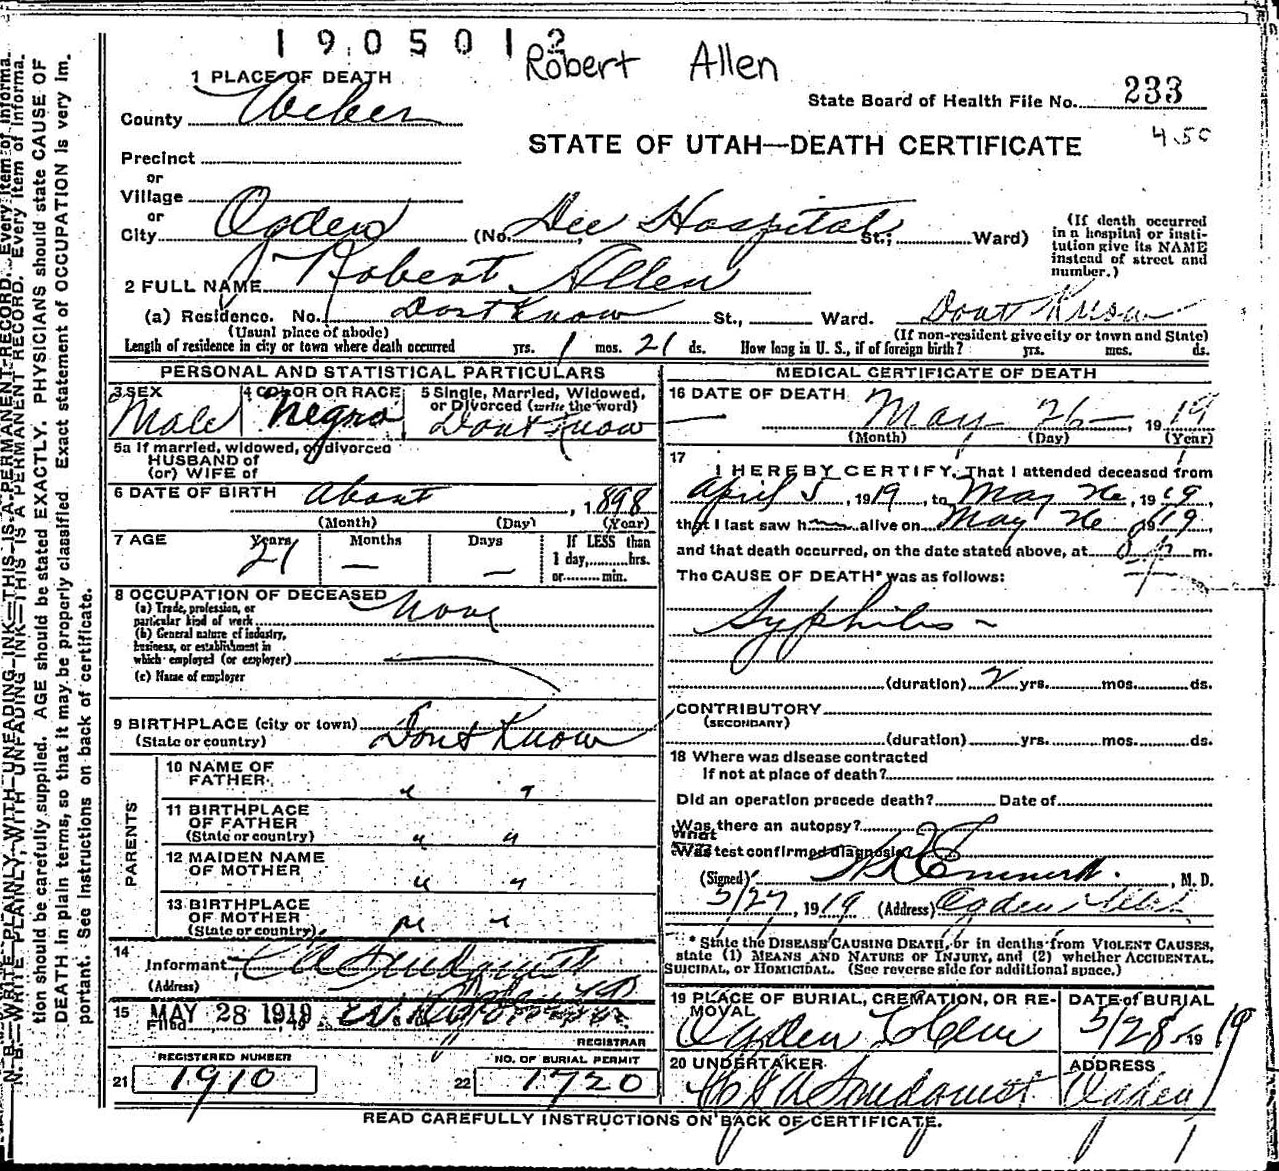 1905012
Robert Allen
1 PLACE OF DEATH
County Weber
State Board of Health File No. 233
STATE OF UTAH—DEATH CERTIFICATE
4.50
Precinct
or
Village
or
City Ogden (No. Dee Hospital St.; Ward)
(If death occurred in a hospital or insti-
tution give its NAME instead of street and number.)
2 FULL NAME Robert Allen
(a) Residence. No. Dont Know St., Ward. Dont Know
(Usual place of abode) (If non-resident give city or town and State)
Length of residence in city or town where death occurred yrs. 1 mos. 21 ds. How long in U. S., if of foreign birth? yrs. mos. ds.
PERSONAL AND STATISTICAL PARTICULARS
3 SEX Male
4 COLOR OR RACE Negro
5 Single, Married, Widowed,
or Divorced (write the word)
Dont Know
5a If married, widowed, or divorced
HUSBAND of
(or) WIFE of
6 DATE OF BIRTH about , 1898
(Month) (Day) (Year)
7 AGE Years 21 Months — Days — If LESS than
1 day, hrs.
or min.
8 OCCUPATION OF DECEASED
(a) Trade, profession, or
particular kind of work None
(b) General nature of industry,
business, or establishment in
which employed (or employer)
(c) Name of employer
9 BIRTHPLACE (city or town) Dont Know
(State or country)
PARENTS
10 NAME OF
FATHER " "
11 BIRTHPLACE
OF FATHER
(State or country) " "
12 MAIDEN NAME
OF MOTHER " "
13 BIRTHPLACE
OF MOTHER
(State or country) " "
14
Informant
(Address)
15 MAY 28 1919
Filed , 19
REGISTRAR
REGISTERED NUMBER
21 1910
NO. OF BURIAL PERMIT
22 1720
MEDICAL CERTIFICATE OF DEATH
16 DATE OF DEATH
May 26 , 1919
(Month) (Day) (Year)
17 I HEREBY CERTIFY, That I attended deceased from
April 5, 1919, to May 26, 1919,
that I last saw h alive on May 26 1919,
and that death occurred, on the date stated above, at m.
The CAUSE OF DEATH* was as follows:
Syphilis
(duration) 2 yrs. mos. ds.
CONTRIBUTORY
(SECONDARY)
(duration) yrs. mos. ds.
18 Where was disease contracted
if not at place of death?
Did an operation precede death? Date of
Was there an autopsy?
What
test confirmed diagnosis?
(Signed) , M. D.
5/27, 1919 (Address) Ogden Utah
* State the DISEASE CAUSING DEATH, or in deaths from VIOLENT CAUSES,
state (1) MEANS AND NATURE OF INJURY, and (2) whether ACCIDENTAL,
SUICIDAL, or HOMICIDAL. (See reverse side for additional space.)
19 PLACE OF BURIAL, CREMATION, OR RE-
MOVAL
Ogden Cem
DATE of BURIAL
5/28 1919
20 UNDERTAKER
ADDRESS
Ogden
READ CAREFULLY INSTRUCTIONS ON BACK OF CERTIFICATE.
N. B.—WRITE PLAINLY, WITH UNFADING INK—THIS IS A PERMANENT RECORD. Every item of informa-
tion should be carefully supplied. AGE should be stated EXACTLY. PHYSICIANS should state CAUSE OF
DEATH in plain terms, so that it may be properly classified. Exact statement of OCCUPATION is very im-
portant. See instructions on back of certificate.